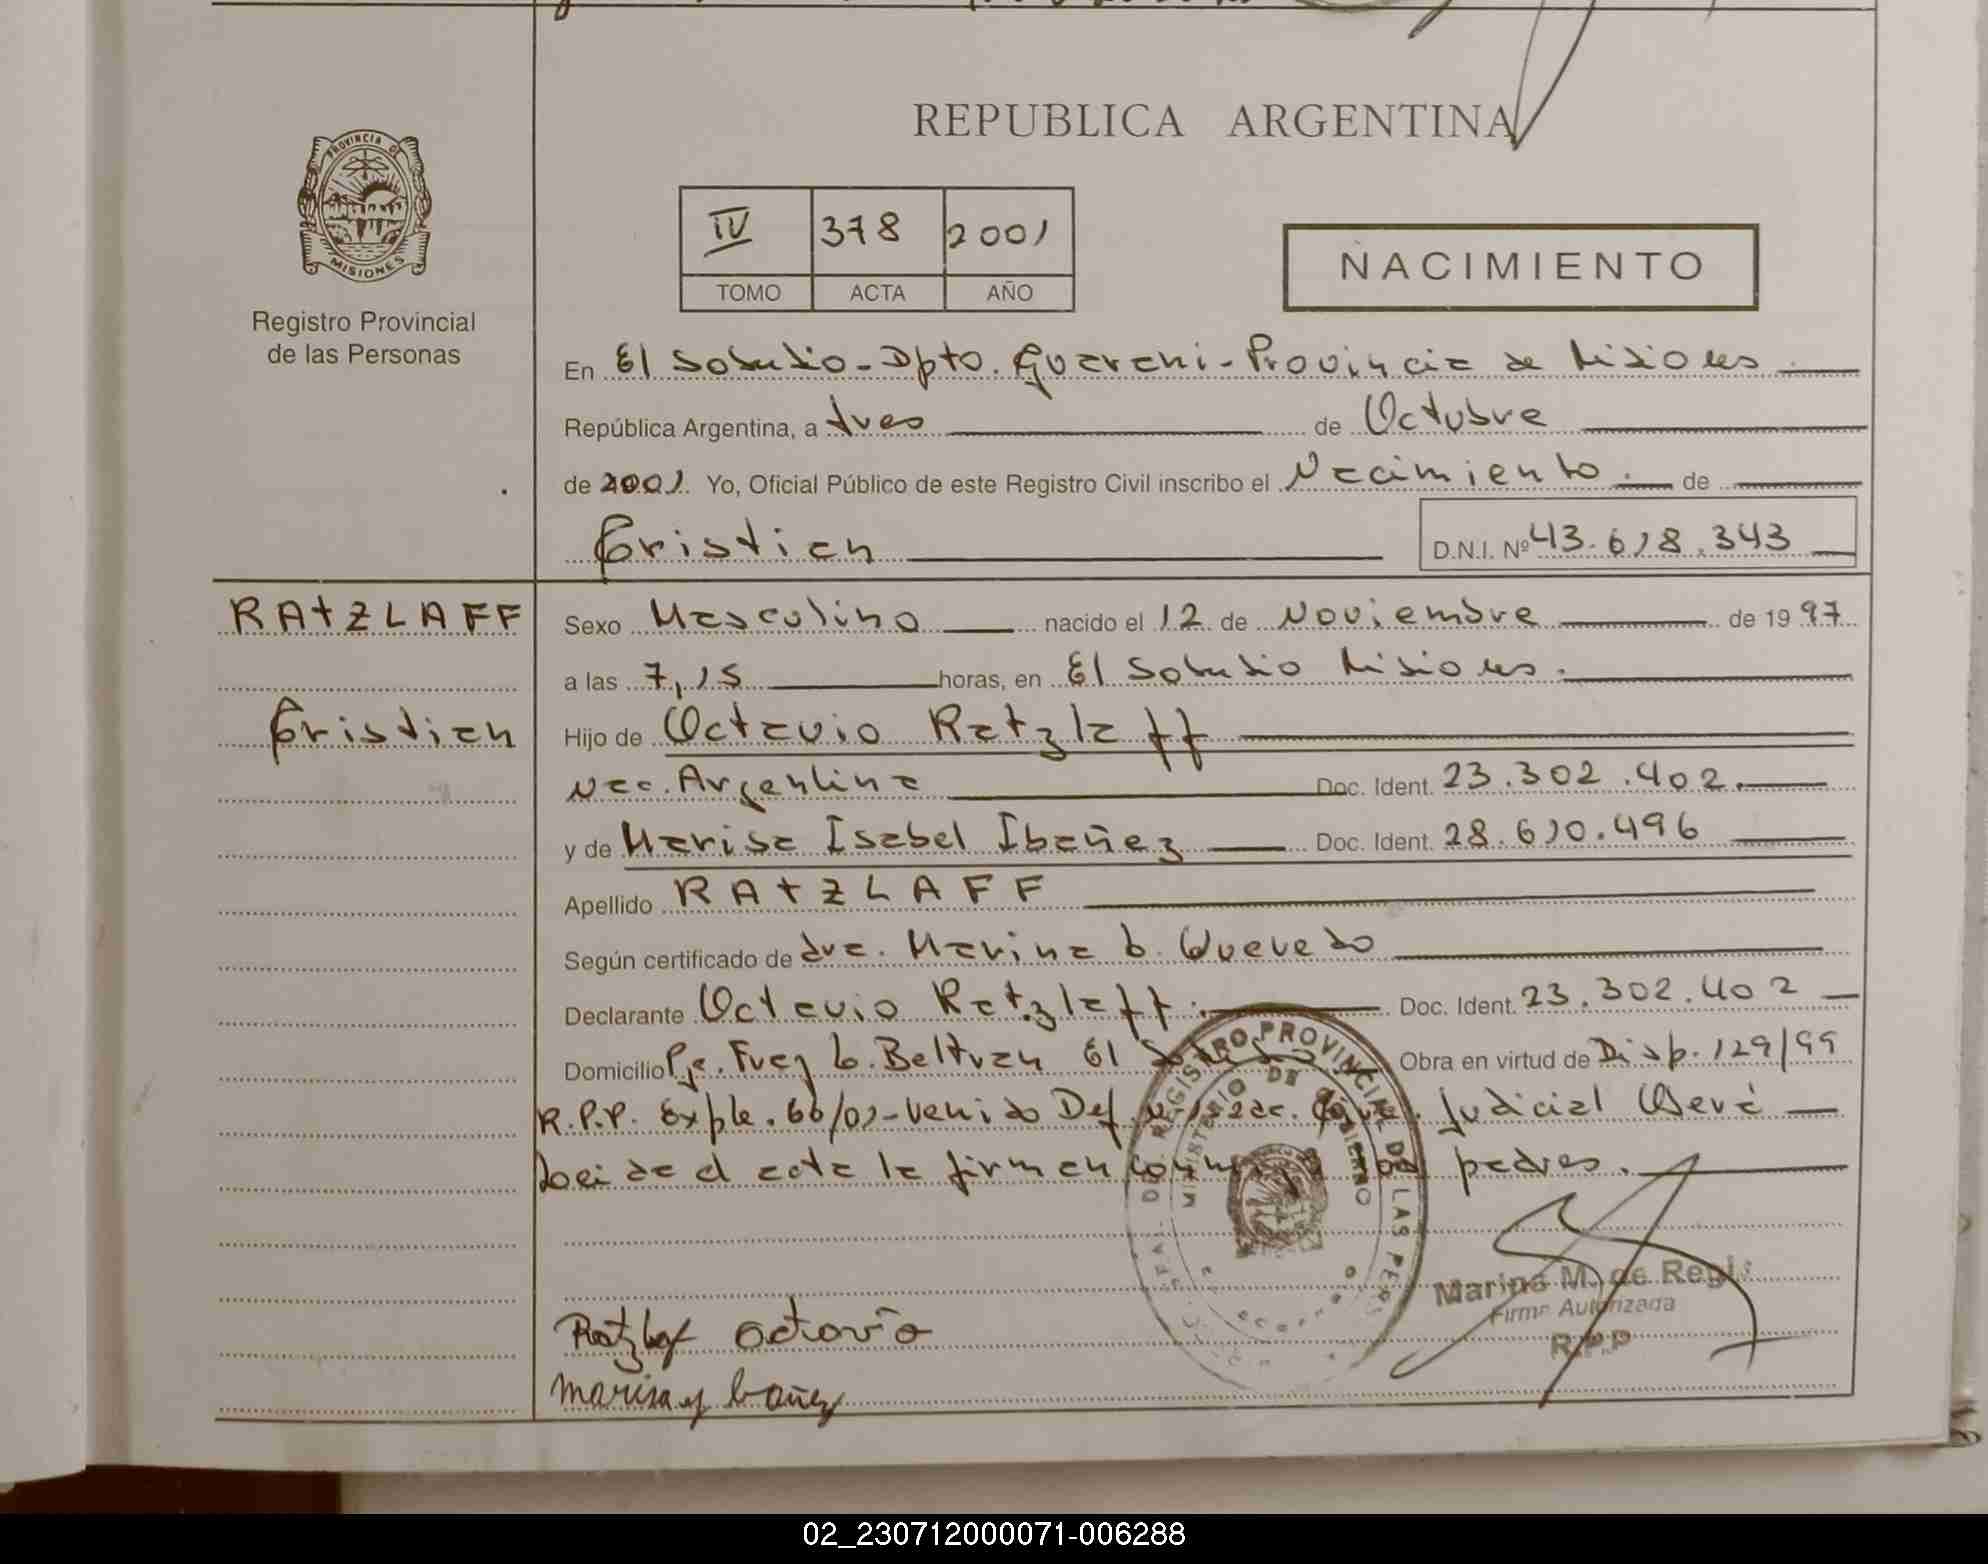 REPUBLICA ARGENTINA
PROVINCIA DE
MISIONES
Registro Provincial
de las Personas
IV 378 2001
TOMO ACTA AÑO
NACIMIENTO
En El Soberbio - Dpto. Guarani - Provincia de Misiones.
República Argentina, a tres de Octubre
de 2001. Yo, Oficial Público de este Registro Civil inscribo el Nacimiento. de
Cristian D.N.I. Nº 43.618.343
RATZLAFF
Cristian
Sexo Masculino nacido el 12 de Noviembre de 1997
a las 7,15 horas, en El Soberbio Misiones.
Hijo de Octavio Ratzlaff
Nac. Argentina Doc. Ident. 23.302.402.
y de Marisa Isabel Ibañez Doc. Ident. 28.610.496
Apellido RATZLAFF
Según certificado de dra. Marina b. Quevedo
Declarante Octavio Ratzlaff. Doc. Ident. 23.302.402
Domicilio Pje. Fray L. Beltran El Obra en virtud de Disp. 129/99
R.P.P. Expte. 66/01 - Venido Def. Judicial Oberá
Leida el acta la firman padres.
REGISTRO PROVINCIAL DE LAS
MINISTERIO DE GOBIERNO
Marina M. de
Firma Autorizada
R.P.P
Ratzlaf octavio
marisa y bañez
02_230712000071-006288